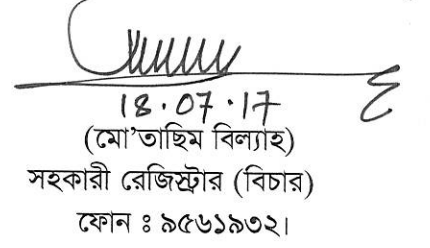 18.07.17
(মো'তাছিম বিল্যাহ)
সহকারী রেজিস্ট্রার (বিচার)
ফোন ঃ ৯৫৬১৯৩২।